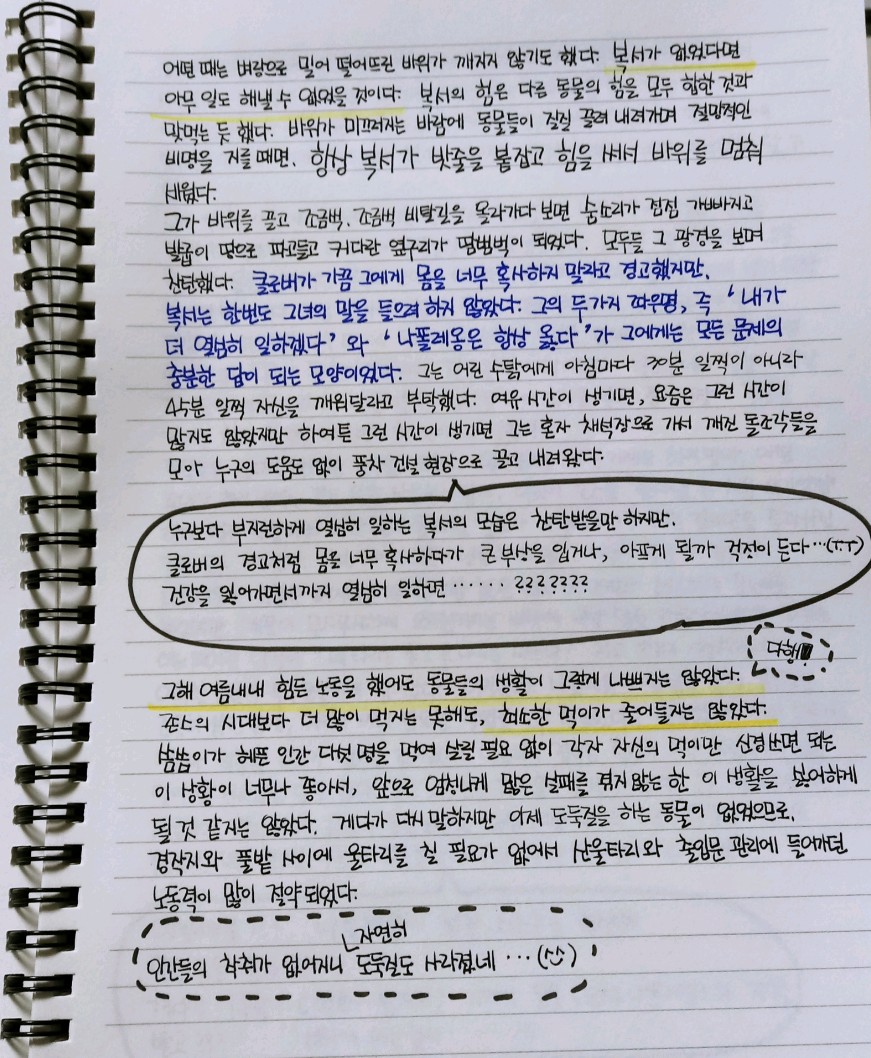 어떤 때는 벼랑으로 밀어 떨어뜨린 바위가 깨지지 않기도 했다. 복서가 없었다면
아무 일도 해낼 수 없었을 것이다. 복서의 힘은 다른 동물의 힘을 모두 합한 것과
맞먹는 듯 했다. 바위가 미끄러지는 바람에 동물들이 질질 끌려 내려가며 절망적인
비명을 지를 때면, 항상 복서가 밧줄을 붙잡고 힘을 써서 바위를 멈춰
세웠다.
그가 바위를 끌고 조금씩, 조금씩 비탈길을 올라가다 보면 숨소리가 점점 가빠지고
발굽이 땅으로 파고들고 커다란 옆구리가 땀범벅이 되었다. 모두들 그 광경을 보며
찬탄했다. 클로버가 가끔 그에게 몸을 너무 혹사하지 말라고 경고했지만,
복서는 한번도 그녀의 말을 들으려 하지 않았다. 그의 두가지 좌우명, 즉 '내가
더 열심히 일하겠다' 와 '나폴레옹은 항상 옳다' 가 그에게는 모든 문제의
충분한 답이 되는 모양이었다. 그는 어린 수탉에게 아침마다 30분 일찍이 아니라
45분 일찍 자신을 깨워달라고 부탁했다. 여유 시간이 생기면, 요즘은 그런 시간이
많지도 않았지만 하여튼 그런 시간이 생기면 그는 혼자 채석장으로 가서 깨진 돌조각들을
모아 누구의 도움도 없이 풍차 건설 현장으로 끌고 내려왔다.
누구보다 부지런하게 열심히 일하는 복서의 모습은 찬탄받을만 하지만,
클로버의 경고처럼 몸을 너무 혹사하다가 큰 부상을 입거나, 아프게 될까 걱정이 든다…(ㅠㅜ)
건강을 잃어가면서까지 열심히 일하면 …… ???????
다행!
그해 여름내내 힘든 노동을 했어도 동물들의 생활이 그렇게 나쁘지는 않았다.
존스의 시대보다 더 많이 먹지는 못해도, 최소한 먹이가 줄어들지는 않았다.
씀씀이가 헤픈 인간 다섯 명을 먹여 살릴 필요 없이 각자 자신의 먹이만 신경쓰면 되는
이 상황이 너무나 좋아서, 앞으로 엄청나게 많은 실패를 겪지 않는 한 이 생활을 싫어하게
될 것 같지는 않았다. 게다가 다시 말하지만 이제 도둑질을 하는 동물이 없었으므로,
경작지와 풀밭 사이에 울타리를 칠 필요가 없어서 산울타리와 출입문 관리에 들어가던
노동력이 많이 절약되었다.
자연히
인간들의 착취가 없어지니 도둑질도 사라졌네 …(^^)